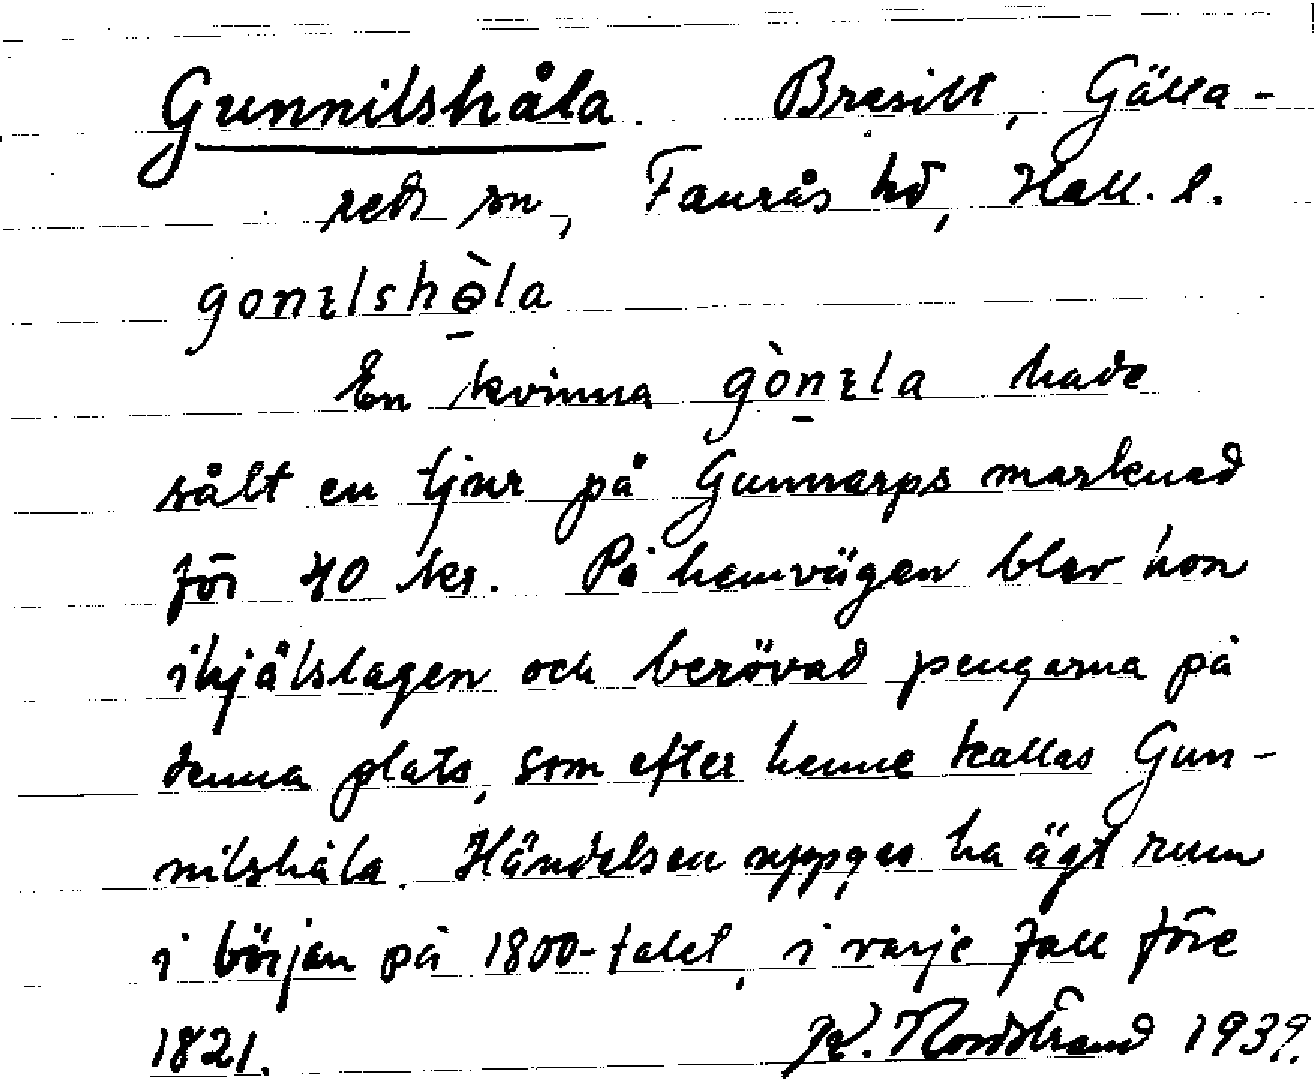 Gunnilshåla. Brasilt, Gälla-
reds sn, Faurås hd, Hall. l.
gonɪlshɵ̀la
En kvinna gònɪla hade
sålt en tjur på Gunnarps marknad
för 40 kr. På hemvägen blev hon
ihjälslagen och berövad pengarna på
denna plats, som efter henne kallas Gun-
nilshåla. Händelsen uppges ha ägt rum
i början på 1800-talet, i varje fall före
1821. Nordstrand 1939.